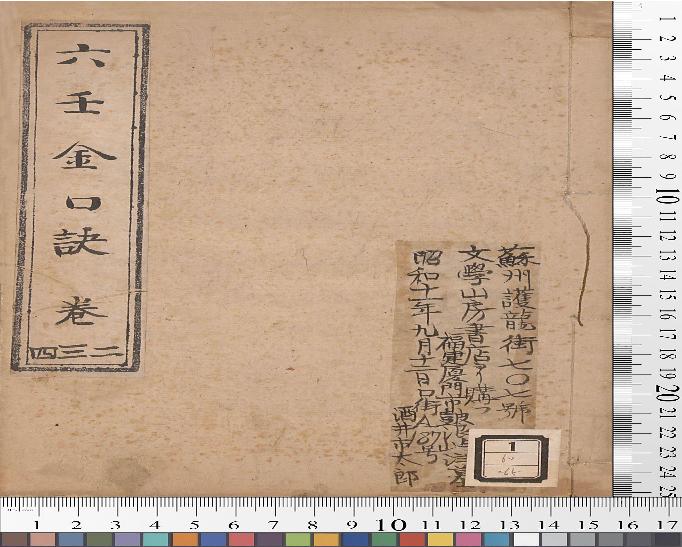 六壬金口訣 卷
二三四
蘇州護龍街七〇七號
文學山房書店ヨリ購フ
昭和十一年九月十二日
福建厦門市
酒井市太郎
1
1 2 3 4 5 6 7 8 9 10 11 12 13 14 15 16 17 18 19 20 21 22 23 24 25
1 2 3 4 5 6 7 8 9 10 11 12 13 14 15 16 17